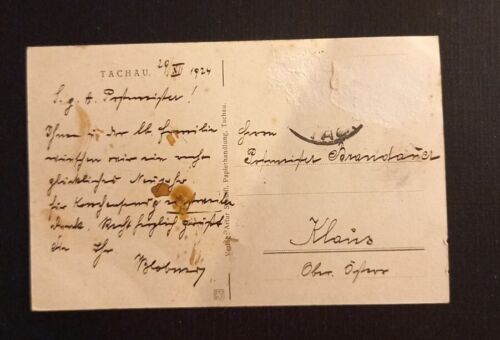 TACHAU.
29/XII 1924
S. g. H. Postmeister!
Ihnen u der lb Familie
wünschen wir ein recht
glückliches Neujahr
für
dank. Recht herzlich grüßt
Sie Ihr
Verlag: Artur Papierhandlung, Tachau.
TAC
Herrn
Postmeister Brandauer
Klaus
Ober. Österr